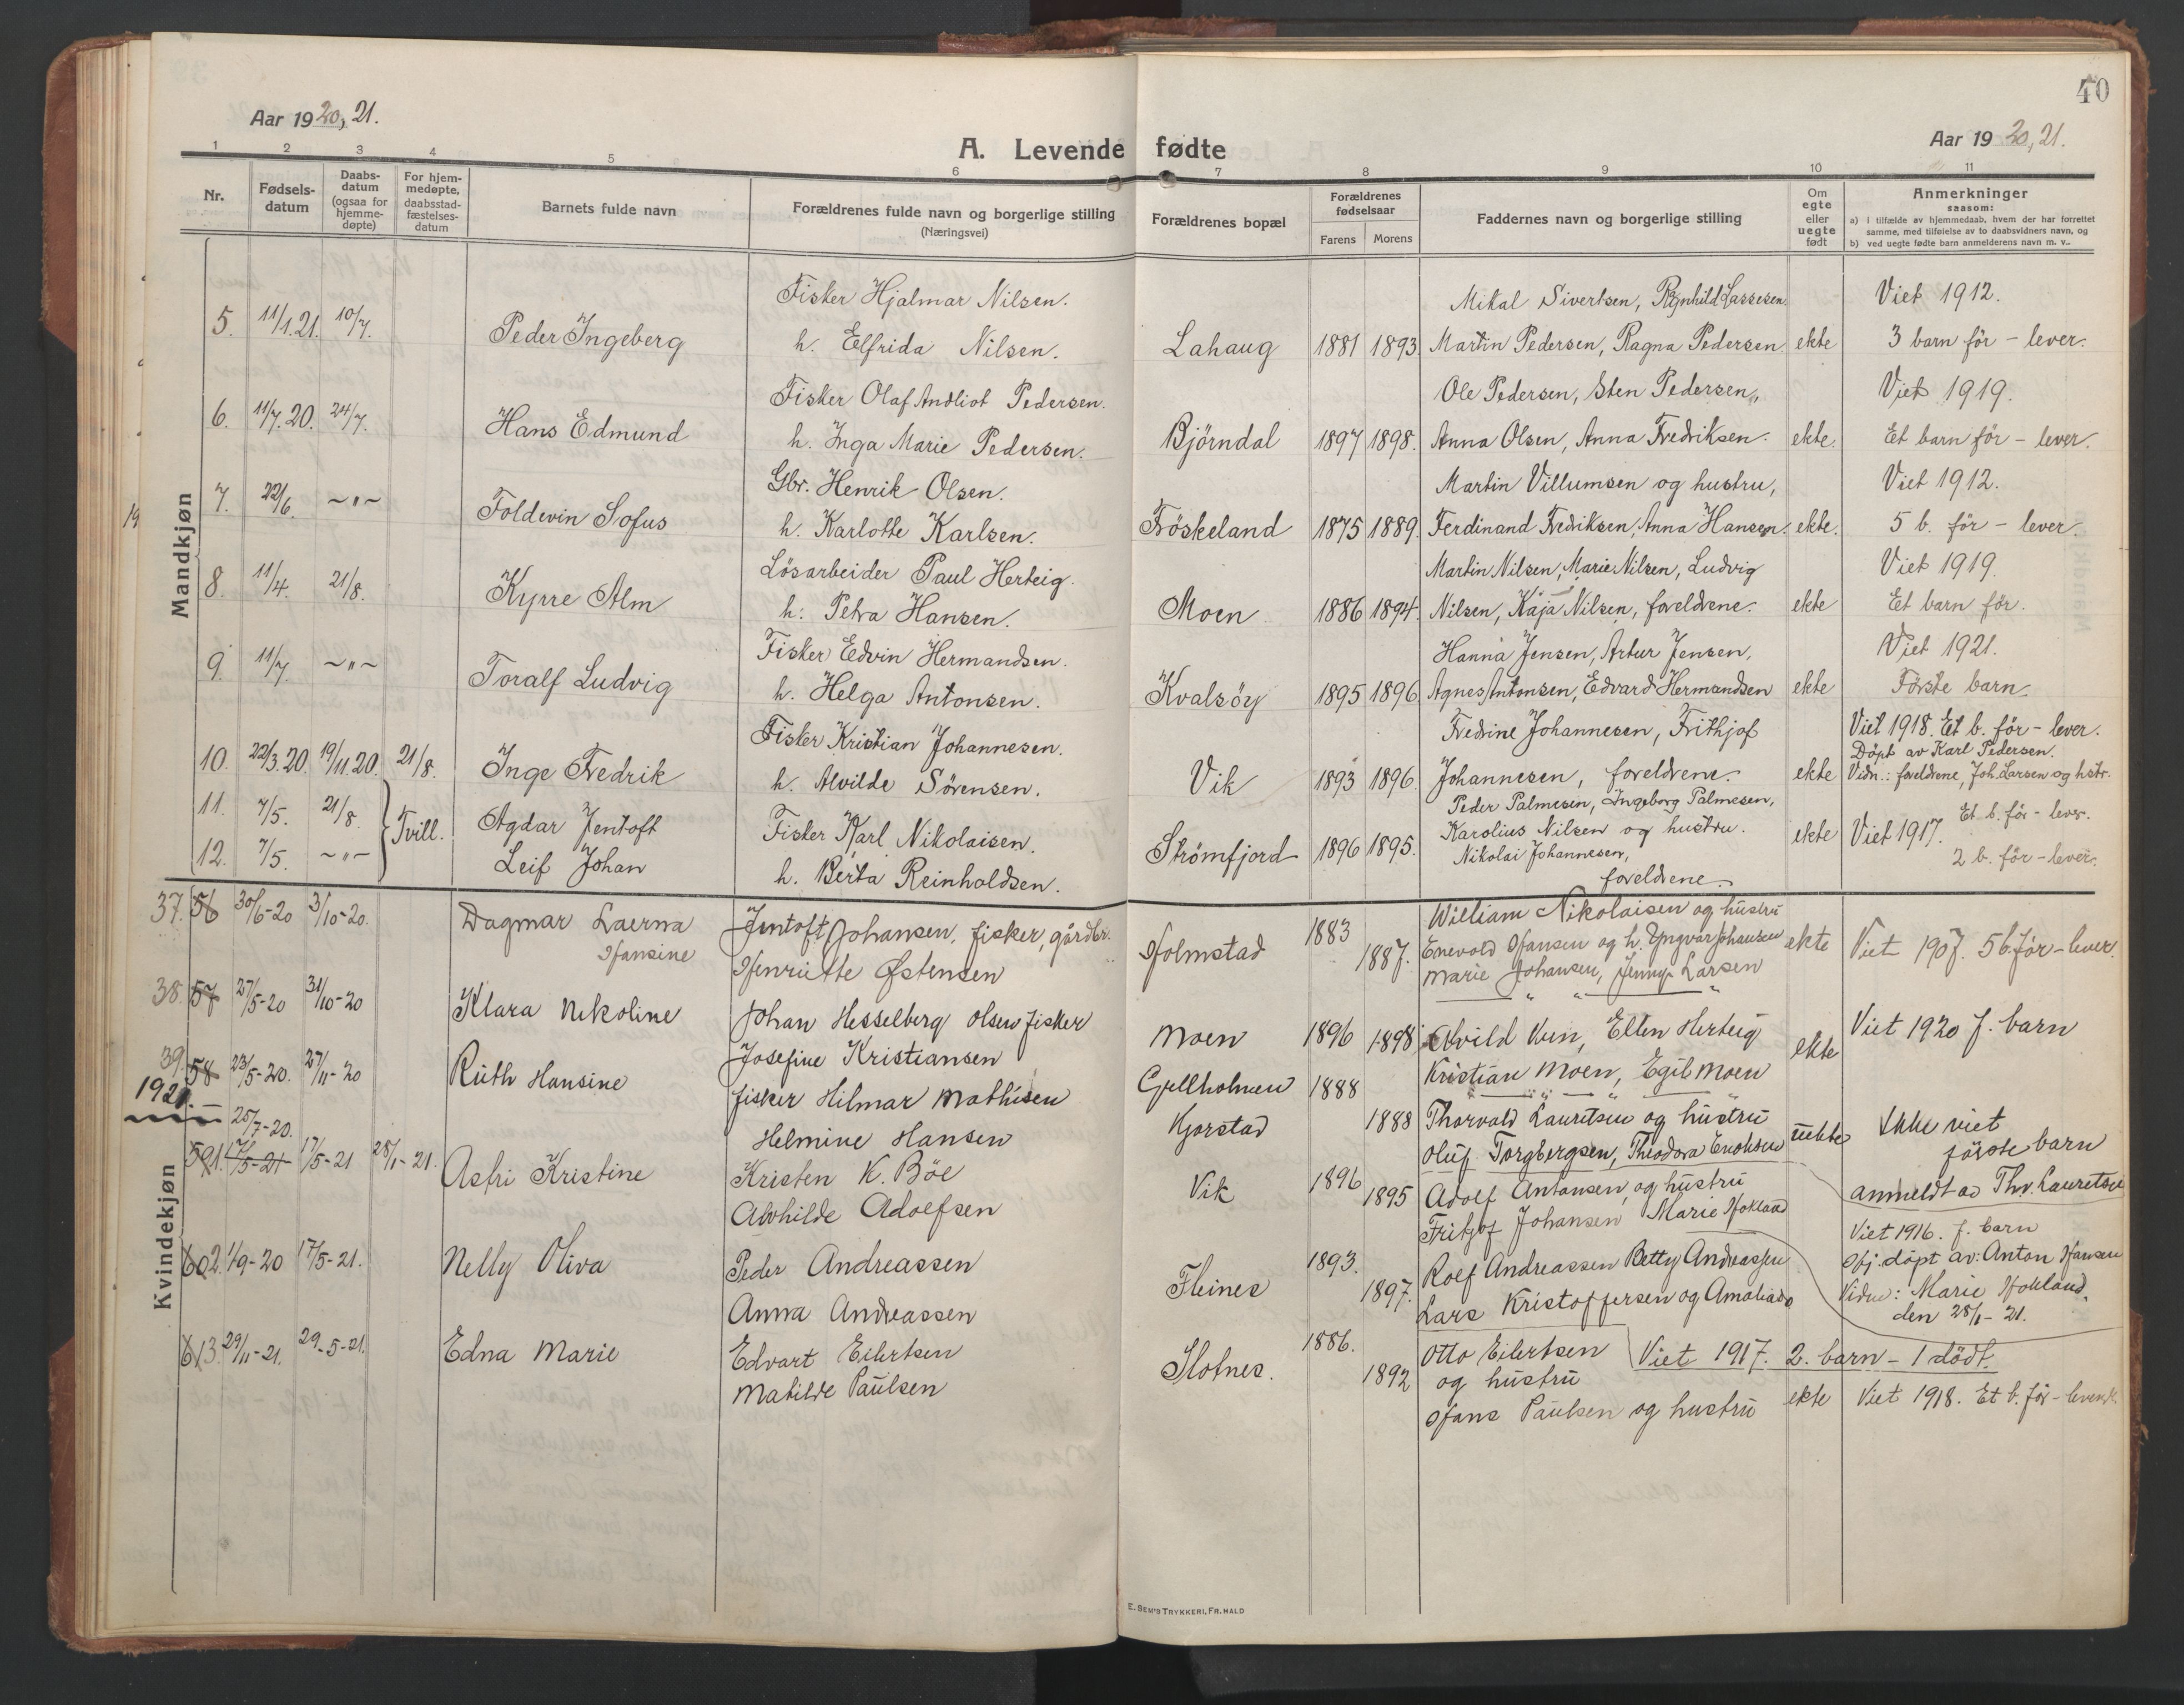 40
Aar 1920, 21.
Aar 1920, 21.
A. Levende fødte
1 2 3 4 5 6 7 8 9 10 11
Nr.
Fødsels-
datum
Daabs-
datum
(ogsaa for
hjemme-
døpte)
For hjem-
medøpte,
daabsstad-
fæstelses-
datum
Barnets fulde navn
Forældrenes fulde navn og borgerlige stilling
(Næringsvei)
Forældrenes bopæl
Forældrenes
fødselsaar
Farens Morens
Faddernes navn og borgerlige stilling
Om
egte
eller
uegte
født
Anmerkninger
saasom:
a) i tilfælde av hjemmedaab, hvem der har forrettet
samme, med tilføielse av to daabsvidners navn, og
b) ved uegte fødte barn anmelderens navn m. v..
Mandkjøn
Fisker Hjalmar Nilsen. Mikal Sivertsen, Viet 1912.
5. 11/1.21. 10/7. Peder Ingeberg h. Elfrida Nilsen. Lahaug 1881 1893. Martin Pedersen, Ragna Pedersen. ekte 3 barn för - lever.
Fisker Olaf Andliot Pedersen. Ole Pedersen, Sten Pedersen, Viet 1919.
6. 11/7.20. 24/7. Hans Edmund h. Inga Marie Pedersen. Björndal 1897 1898. Anna Olsen, Anna Fredriksen. ekte. Et barn för - lever.
Gbr. Henrik Olsen. Martin Villumsen og hustru, Viet 1912.
7. 22/6. ~"~ Foldevin Sofus h. Karlotte Karlsen. Fröskeland 1875 1889. Ferdinand Fredriksen, Anna Hansen. ekte. 5 b. för - lever.
Lösarbeider Paul Herteig. Martin Nilsen, Marie Nilsen, Ludvig Viet 1919.
8. 11/4. 21/8. Kyrre Alm h. Petra Hansen. Moen 1886 1894. Nilsen, Kaja Nilsen, foreldrene. ekte Et barn för.
Fisker Edvin Hermandsen. Hanna Jensen, Artur Jensen, Viet 1921.
9. 11/7. ~"~ Toralf Ludvig h. Helga Antonsen. Kvalsöy 1895 1896 Agnes Antonsen, Edvard Hermandsen ekte Förste barn.
Fisker Kristian Johannesen. Fredrine Johannesen, Frithjof Viet 1918. Et b. för - lever.
Döpt av Karl Pedersen.
10. 22/3.20. 19/11.20. 21/8. Inge Fredrik h. Alvilde Sörensen. Vik 1893 1896. Johannesen, foreldrene. ekte Vidn.: foreldrene, Joh. Larsen og hstr.
Peder Palmesen, Ingeborg Palmesen,
11. 7/5. 21/8 Tvill. Agdar Jentoft Fisker Karl Nikolaisen. Karolius Nilsen og hustru. Et b. för - lever.
Strömfjord 1896 1895. Nikolai Johannesen, ekte Viet 1917.
12. 7/5. ~"~ Leif Johan h. Berta Reinholdsen. foreldrene. 2 b. för - lever.
Kvindekjøn
William Nikolaisen og hustru
37. 56 30/6-20 3/10-20. Dagmar Laerna Jentoft Johansen, fisker, gårdbr. Holmstad 1883 Enevold Hansen og h. Yngvar Johansen ekte Viet 1907. 5 b. för - lever.
Hansine Henriette Østensen 1887. Marie Johansen, Jenny Larsen
38. 57 27/5-20 31/10-20 Klara Nikoline Johan Hesselberg Olsen fisker Moen 1896 1898 Ellen Herteig ekte Viet 1920 f. barn
Josefine Kristiansen Kristian Moen, Egil Moen
39. 58 23/5-20. 27/11-20 Ruth Hansine fisker Hilmar Mathisen Gjellholmen 1888 Thorvald Lauritsen og hustru uekte Ikke viet
1921. Helmine Hansen Kjorstad 1888 Oluf Torgbergsen, Theodora Enoksen første barn
anmeldt av Thv. Lauretsen
25/7-20.
59 1. 17/5-21 17/5-21 28/1-21. Astri Kristine Kristen K. Böe Vik 1896 Adolf Antonsen og hustru
Alvhilde Adolfsen 1895 Fritjof Johansen Marie Hokland
Viet 1916. f. barn
Hj. döpt av: Anton Hansen
Vidne: Marie Hokland.
den 28/1-21.
60 2. 1/9-20 17/5-21. Nelly Oliva Peder Andreassen Fleines 1893. Rolf Andreassen Betty Andreassen
Anna Andreassen 1897. Lars Kristoffersen og Amalia
Viet 1917. 2. barn - 1 dödt.
61 3. 29/11-21. 29-5-21. Edna Marie Edvart Eilertsen Slotnes. 1886. Otto Eilertsen
Matilde Paulsen 1892 og hustru
Hans Paulsen og hustru ekte Viet 1918. Et b. för - levende
E. SEM'S TRYKKERI, FR.HALD